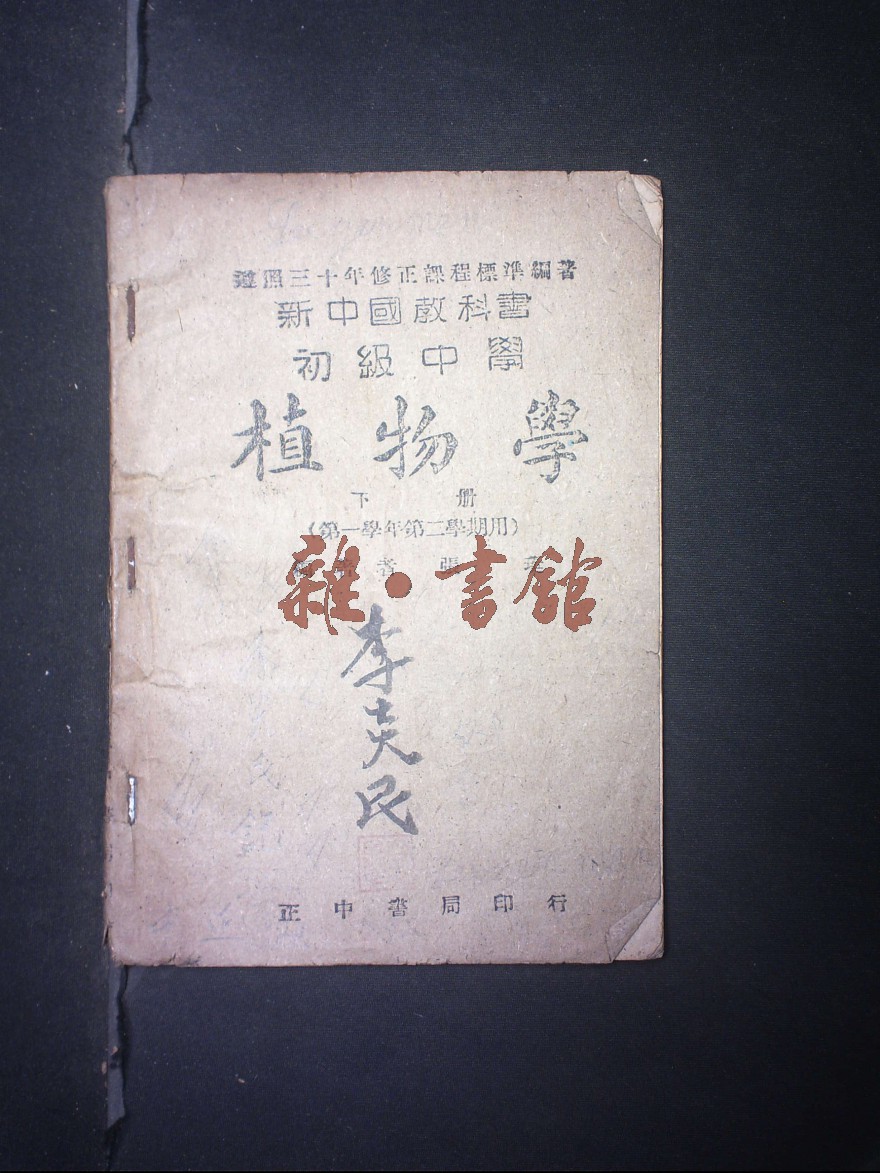 遵照三十年修正課程標準編著
新中國教科書
初級中學
植物學
下册
（第一學年第二學期用）
雜·書館
李炎民
正中書局印行